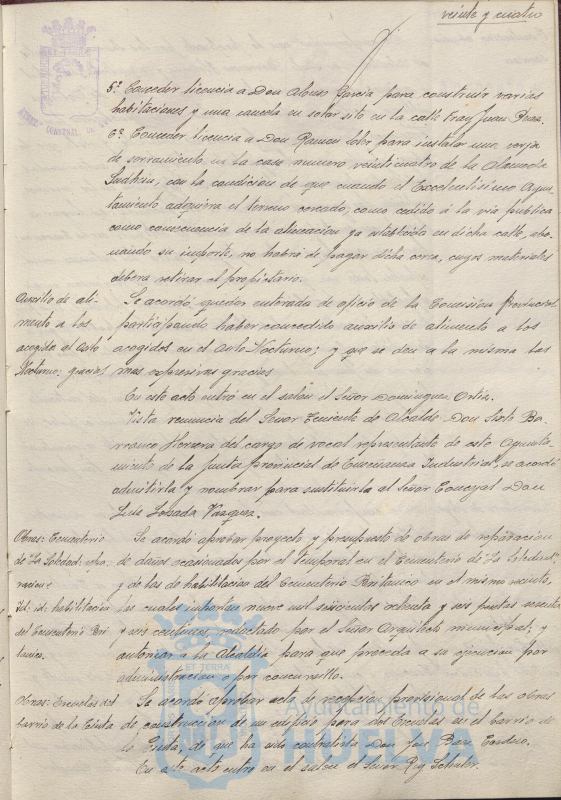 veinte y cuatro
5º Conceder licencia a Don Alonso Garcia para construir varias
habitaciones y una cancela en solar sito en la calle Fray Juan Perez.
6º Conceder licencia a Don Ramon para instalar una verja
de cerramiento en la casa numero veinticuatro de la Alameda
Sundheim, con la condicion de que cuando el Excelentisimo Ayun-
tamiento adquiera el terreno cercado, como cedido á la via publica
como consecuencia de la alineacion ya establecida en dicha calle, abo-
nando su importe, no habrá de pagar dicha cerca, cuyos materiales
debera retirar el propietario.
Auxilio de ali-
mento a los
acogidos al Asilo
Nocturno: gracias.
Se acordó quedar enterada de oficio de la Comision Provincial
participando haber concedido auxilio de alimento a los
acogidos en el Asilo Nocturno; y que se den a la misma las
mas expresivas gracias
En este acto entro en el salon el Señor Dominguez Ortiz.
Vista renuncia del Señor Teniente de Alcalde Don Sixto Ba-
rranco Herrera del cargo de vocal representante de este Ayunta-
miento de la Junta provincial de Enseñanza Industrial, se acordó
admitirla y nombrar para sustituirla al Señor Concejal Don
Luis Losada Vazquez.
Obras: Cementerio
de "La Soledad: repa-
racion=
Id: id: habilitacion
del Cementerio Bri-
tanico.
Se acordó aprobar proyecto y presupuesto de obras de reparacion
de daños ocasionados por el temporal en el Cementerio de "La Soledad",
y de las de habilitacion del Cementerio Britanico en el mismo recinto,
los cuales importan nueve mil ochenta y seis pesetas sesenta
y seis centimos, redactado por el Señor Arquitecto municipal; y
autorizar a la Alcaldia para que proceda a su ejecucion por
administracion o por concursillo.
Obras: Escuelas del
barrio de la Cinta
Se acordó aprobar acta de recepcion provisional de las obras
de construccion de un edificio para dos Escuelas en el barrio de
la Cinta, de que ha sido contratista Don Jose Cordero.
En este acto entro en el salon el Señor Rey Schuler.
ET TERRA
Ayuntamiento de
HUELVA